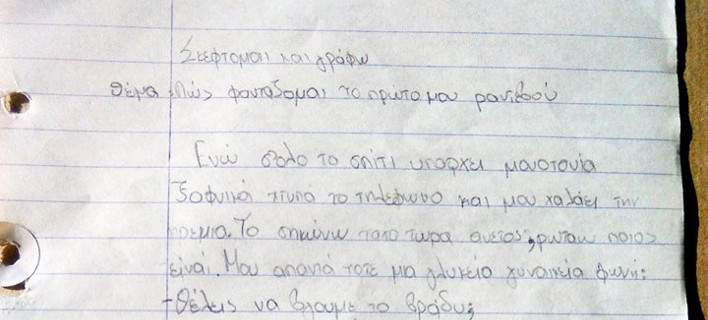 Σκέφτομαι και γράφω
Θέμα: Πώς φανταζομαι το πρωτο μου ραντεβού
Ενώ σ'ολο το σπίτι υπαρχει μονοτονία
ξαφνικά χτυπά το τηλεφωνο και μου χαλάει την
ηρεμια. Το σηκώνω τωρα αυτος, ρωταω ποιος
είναι. Μου απαντά τοτε μια γλυκεία γυναικεία φωνή:
-Θέλεις να βγουμε το βράδυ;